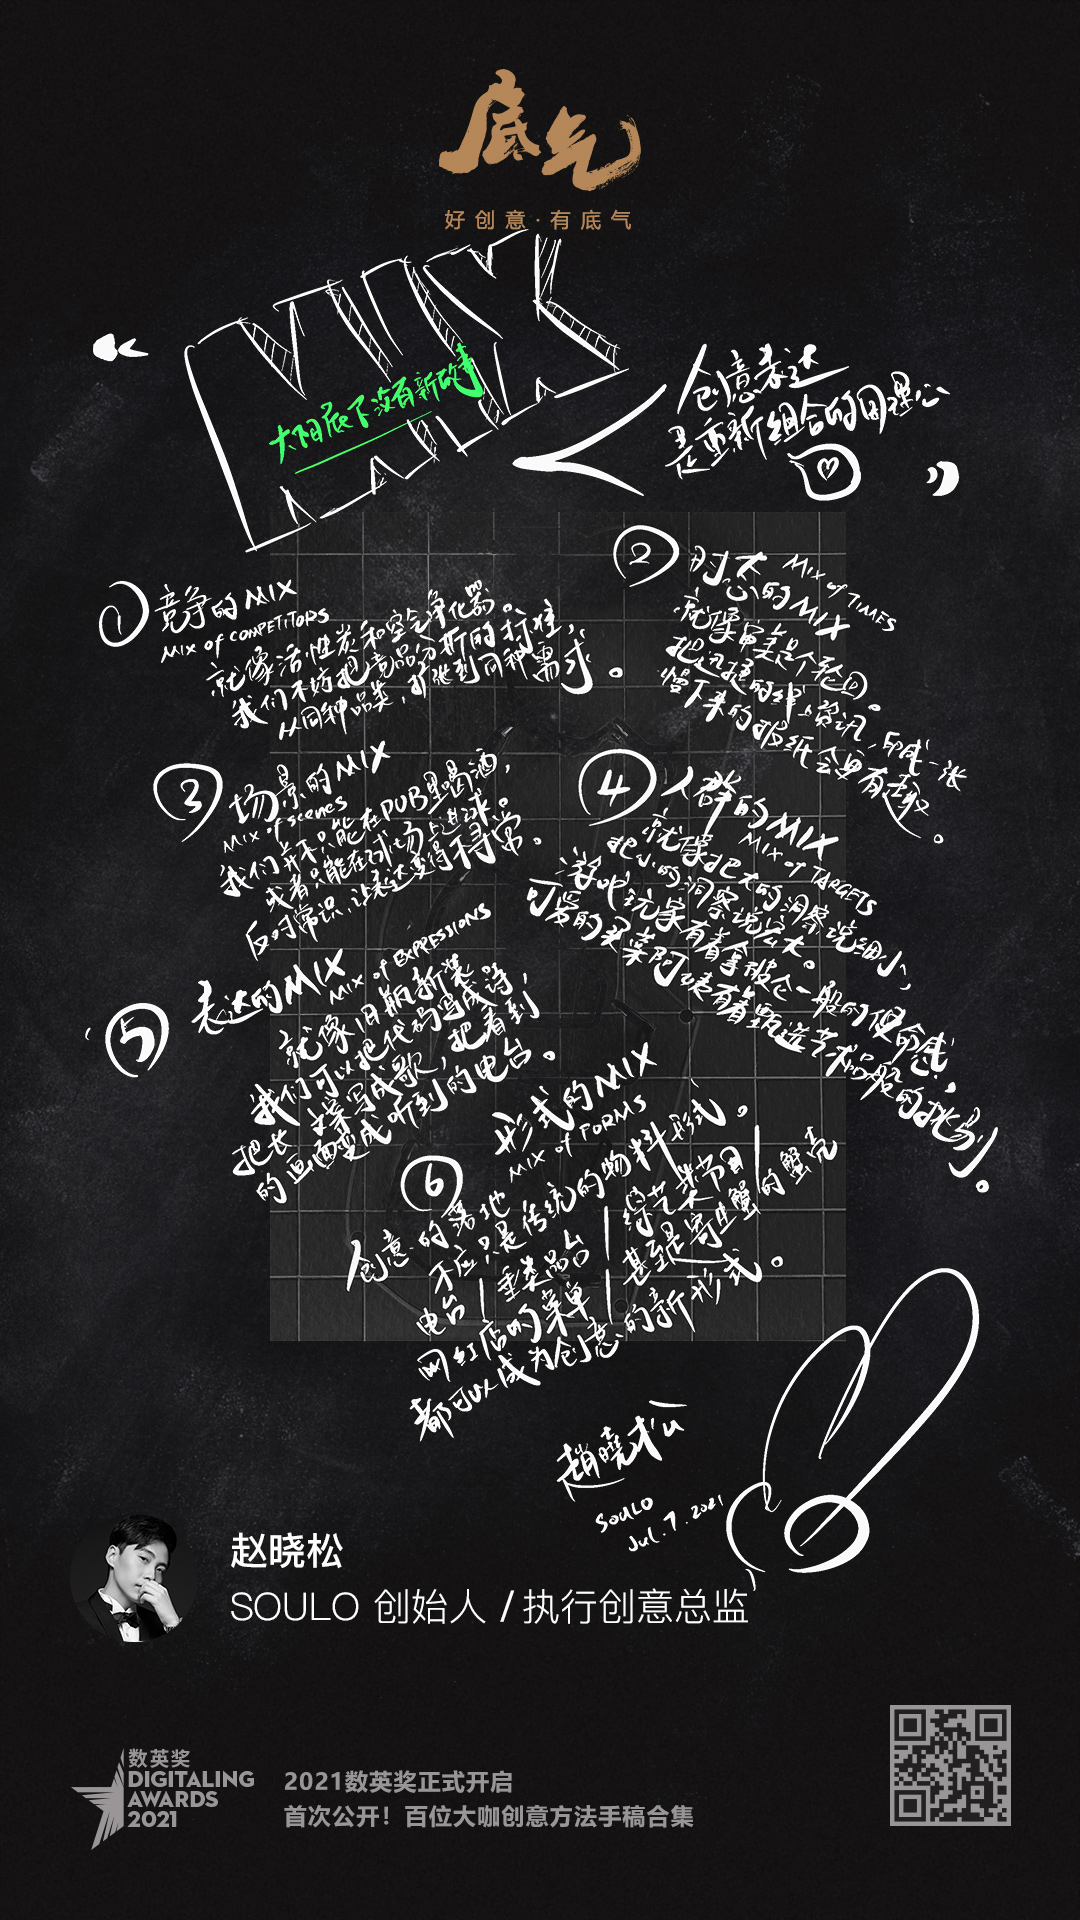 底气
好创意·有底气
MIX
太阳底下没有新故事
创意表达
是重新组合的同理心
① 竞争的MIX
MIX of COMPETITORS
就像活性炭和空气净化器。
我们不妨把竞品分析的标准,
从同种品类,扩张到同种需求。
② 时态的MIX
MIX of TIMES
就像审美是个轮回。
把迅捷的线上资讯,印成一张
慢下来的报纸会更有趣。
③ 场景的MIX
MIX of scenes
我们并不只能在PUB里喝酒,
或者只能在球场上进球。
反对常识,让表达变得不寻常。
④ 人群的MIX
MIX of TARGETS
就像把大的洞察说细小,
把小的洞察说宏大。
游戏玩家有着拿破仑一般的使命感,
可爱的买菜阿姨有着甄选艺术品般的挑剔。
⑤ 表达的MIX
MIX of EXPRESSIONS
就像旧瓶新装
我们可以把代码写成诗,
把长文案写成歌,把看到
的画面变成听到的电台。
⑥ 形式的MIX
MIX of FORMS
创意的落地
不应只是传统的物料形式。
电台/垂类品台/综艺类节目/
网红店的菜单/甚至是寄生蟹的蟹壳
都可以成为创意的新形式。
趙曉松
SOULO
Jul.7.2021
赵晓松
SOULO 创始人 / 执行创意总监
数英奖
DIGITALING
AWARDS
2021
2021数英奖正式开启
首次公开!百位大咖创意方法手稿合集